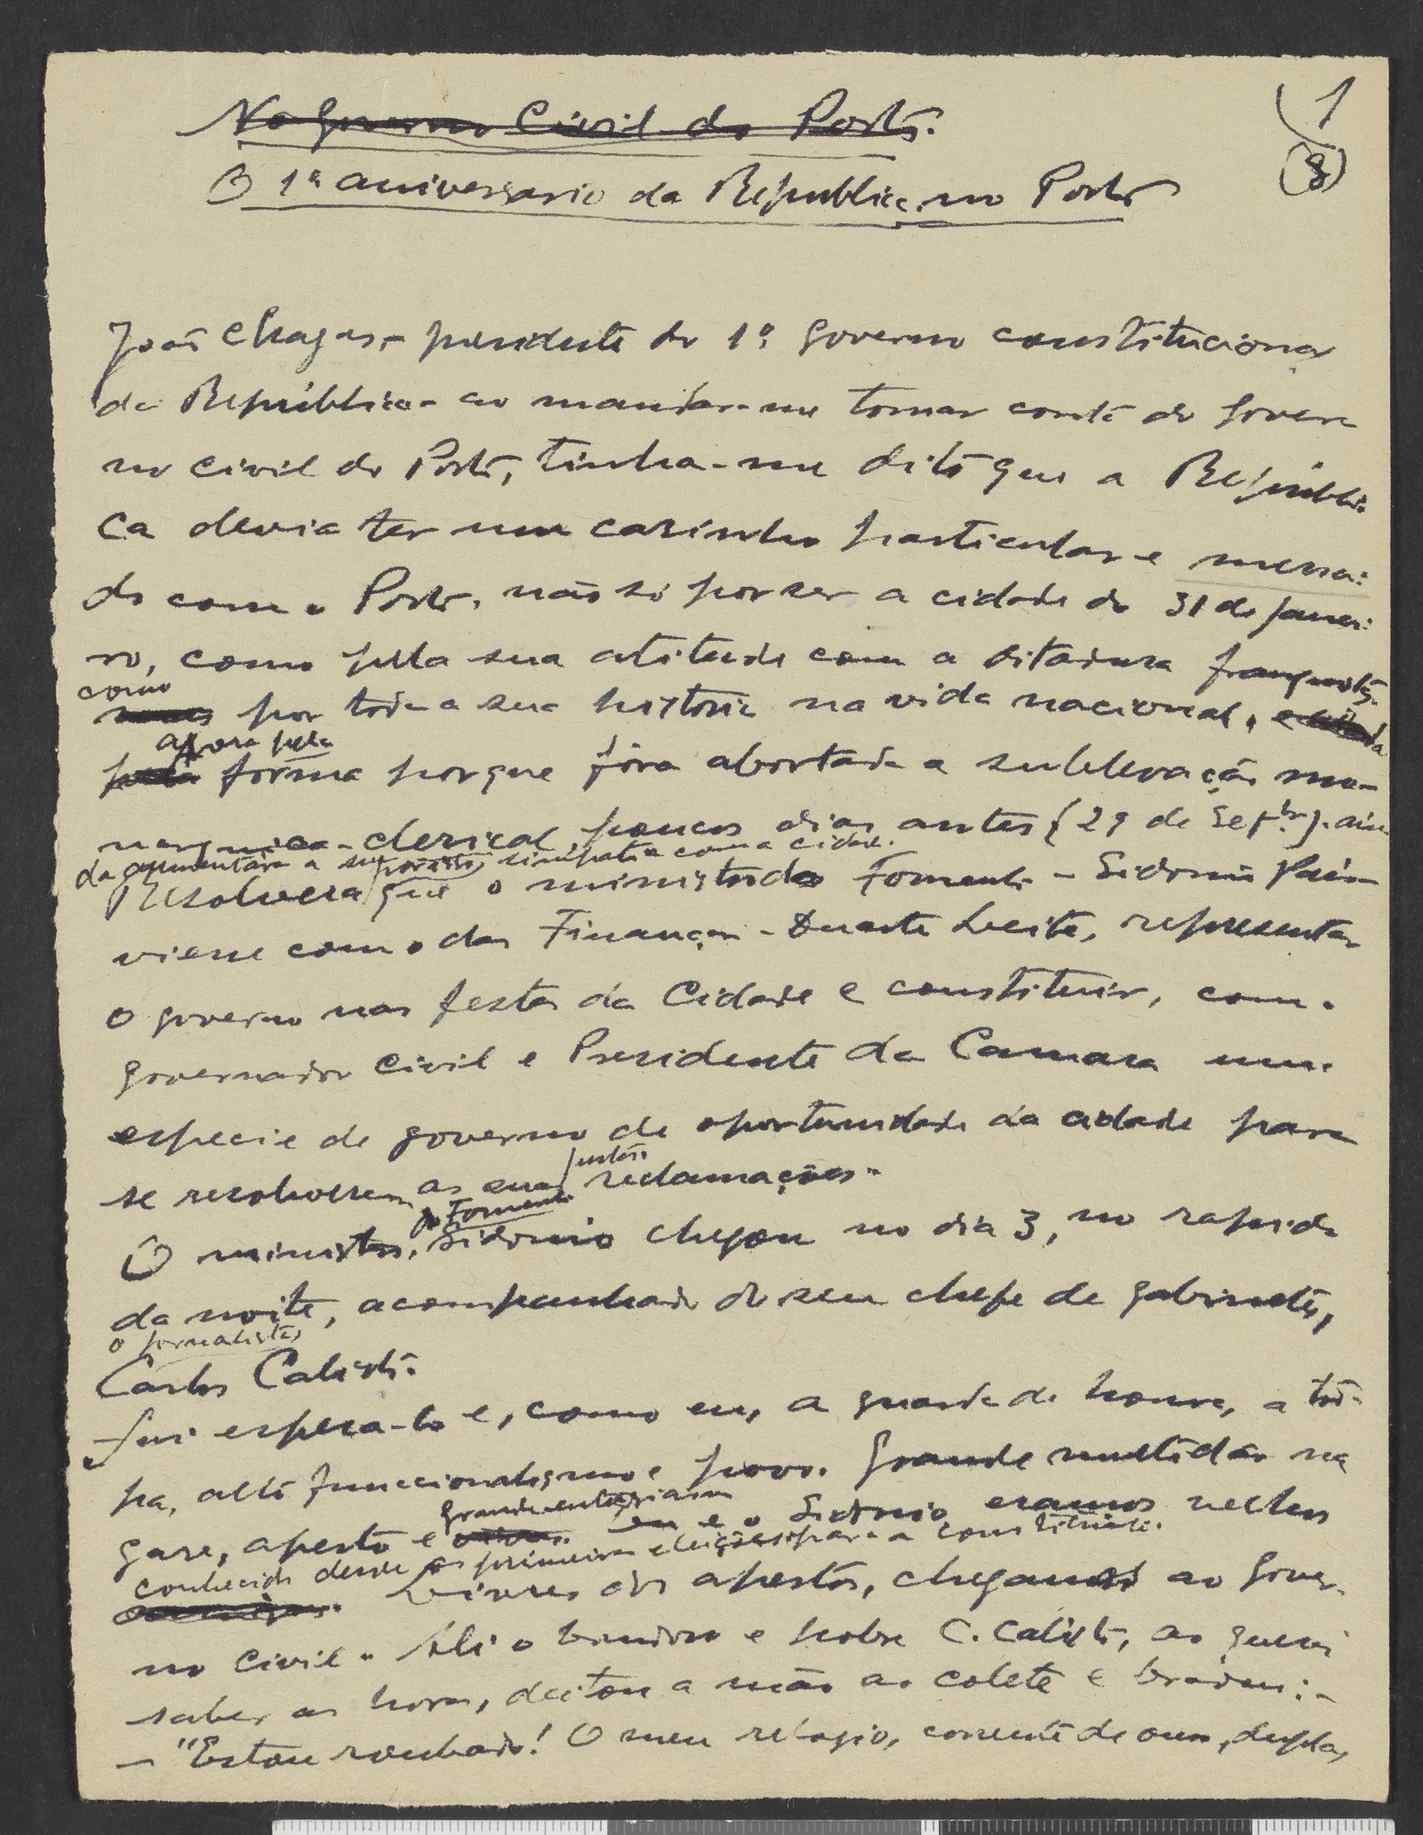 No Governo Civil do Porto.
1
(8)
O 1º aniversario da Republica no Porto
João Chagas, - presidente do 1º governo constitucional
da República - ao mandar-me tomar conta do Gover
no civil do Porto, tinha-me dito que a Repúbli-
ca devia ter um carinho particular e
do com o Porto, não só por ser a cidade do 31 de janei-
ro, como pela sua atitude com a ditadura franquista
como
por toda a sua historia na vida nacional,
agora pela
pela forma porque fôra abortada a sublevação mo-
narquica-clerical, poucos dias antes (29 de Setbr.). ain
da aumentára a sua simpatia com a cidade.
Resolvera que o ministro do Fomento - Sidonio Pais -
viesse com o das Finanças - Duarte Leite, representar
o governo nas festas da Cidade e constituir, com o
governador civil e Presidente da Camara uma
especie de governo de oportunidade da cidade para
se resolverem as suas justas reclamações.
do Fomento
O ministro, Sidonio chegou no dia 3, no rapido
da noite, acompanhado do seu chefe de gabinete,
o jornalista,
Carlos Calisto.
Fui espera-lo e, como eu, a guarda de honra, a tro-
pa, alto funcionalismo e povo. Grande multidão na
grande entusiasmo
gare, aperto e eu e o Sidonio eramos velhos
conhecidos desde as primeiras eleições para a Constituinte.
amigos. Livres dos apertos, chegamos ao Gover-
no Civil. Ali o bondoso e pobre C. Calisto, ao querer
saber as horas, deitou a mão ao colete e bradou: -
- "Estou roubado! O meu relogio, corrente de ouro, dupla,